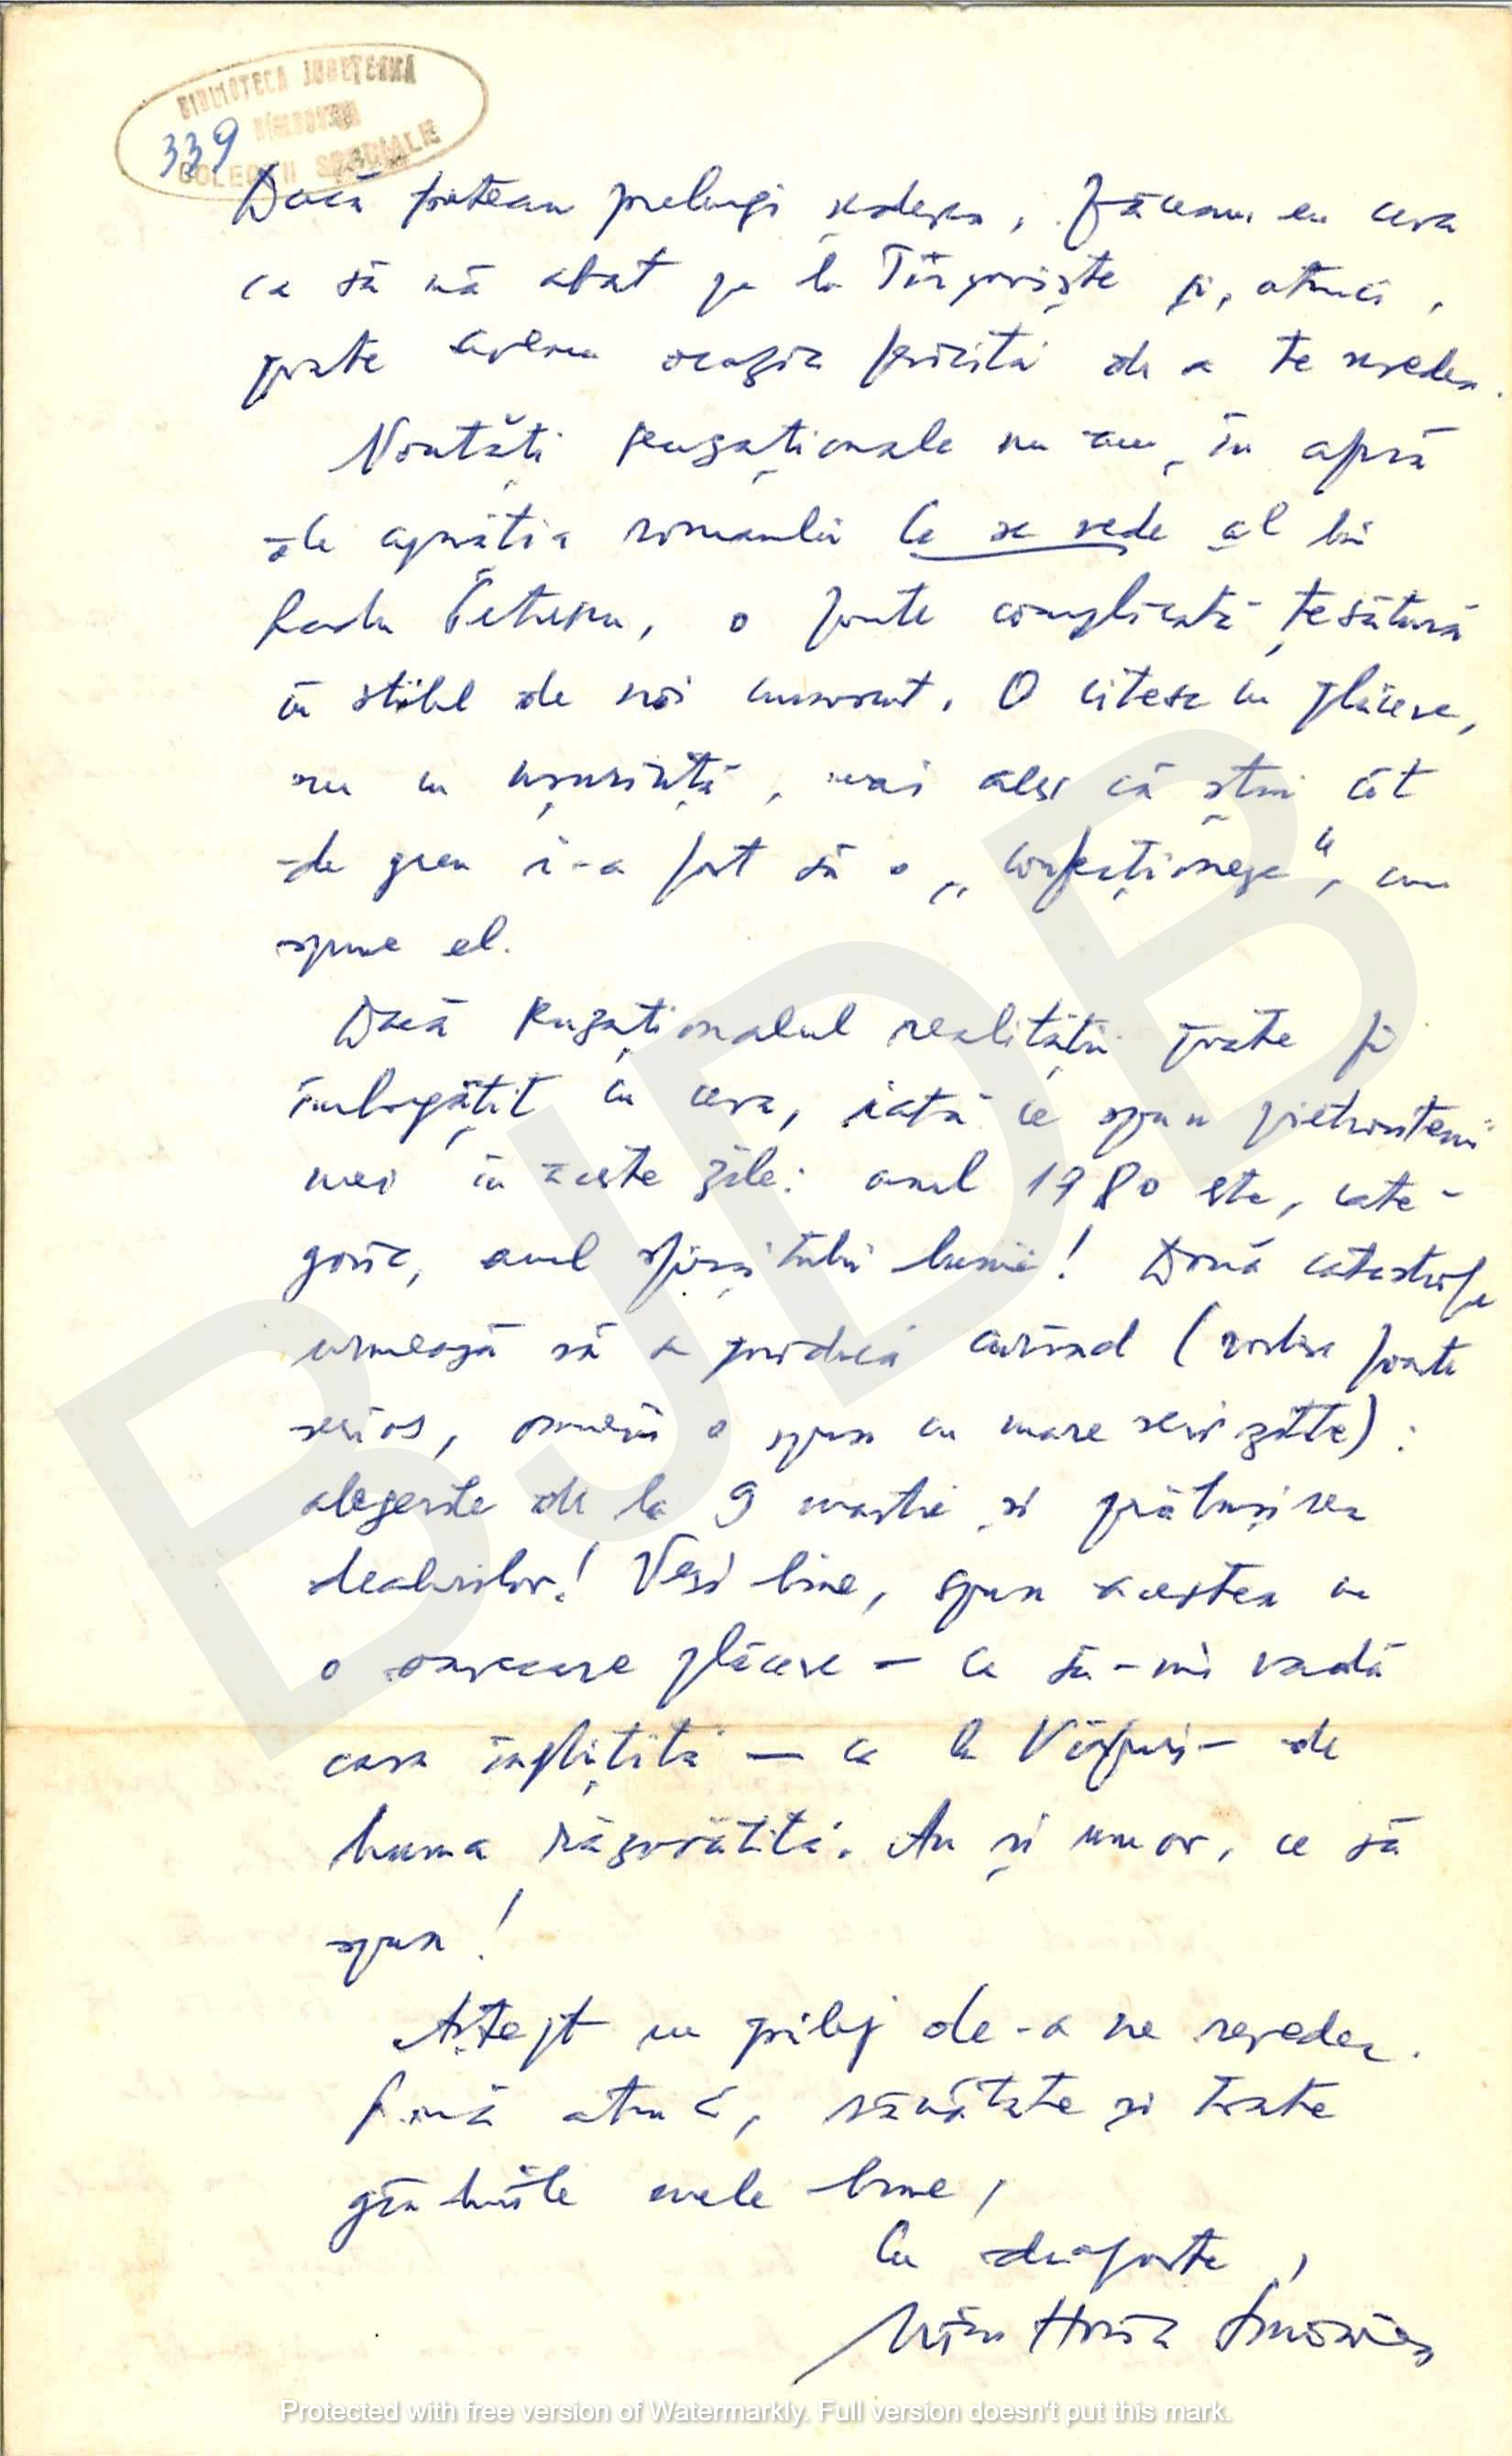 BIBLIOTECA JUDEȚEANĂ
DÎMBOVIȚA
339
COLECȚII SPECIALE
Dacă puteam prelungi șederea, făceam eu ceva
ca să mă abat pe la Tîrgoviște și, atunci,
poate aveam ocazia fericită de a te revedea.
Noutăți senzaționale nu am, în afară
de apariția romanului Ce se vede al lui
Radu Petrescu, o foarte complicată țesătură
în stilul de noi cunoscut. O citesc cu plăcere,
nu cu ușurință, mai ales că știu cît
de greu i-a fost să o „confecționeze", cum
spune el.
Dacă senzaționalul realității poate fi
îmbogățit cu ceva, iată ce spun pietroștenii
mei în aceste zile: anul 1980 este, cate-
goric, anul sfîrșitului lumii! Două catastrofe
urmează să se producă curînd (vorbesc foarte
serios, oamenii o spun cu mare seriozitate):
alegerile de la 9 martie și prăbușirea
dealurilor! Vezi bine, spun acestea cu
o oarecare plăcere — ca să-mi vadă
casa înghițită — ca la Vîrfuri — de
huma răzvrătită. Au și umor, ce să
spun!
Aștept un prilej de-a ne revedea.
Pînă atunci, sănătate și toate
gîndurile mele bune,
Cu dragoste,
Mircea Horia Simionescu
BJDB
Protected with free version of Watermarkly. Full version doesn't put this mark.